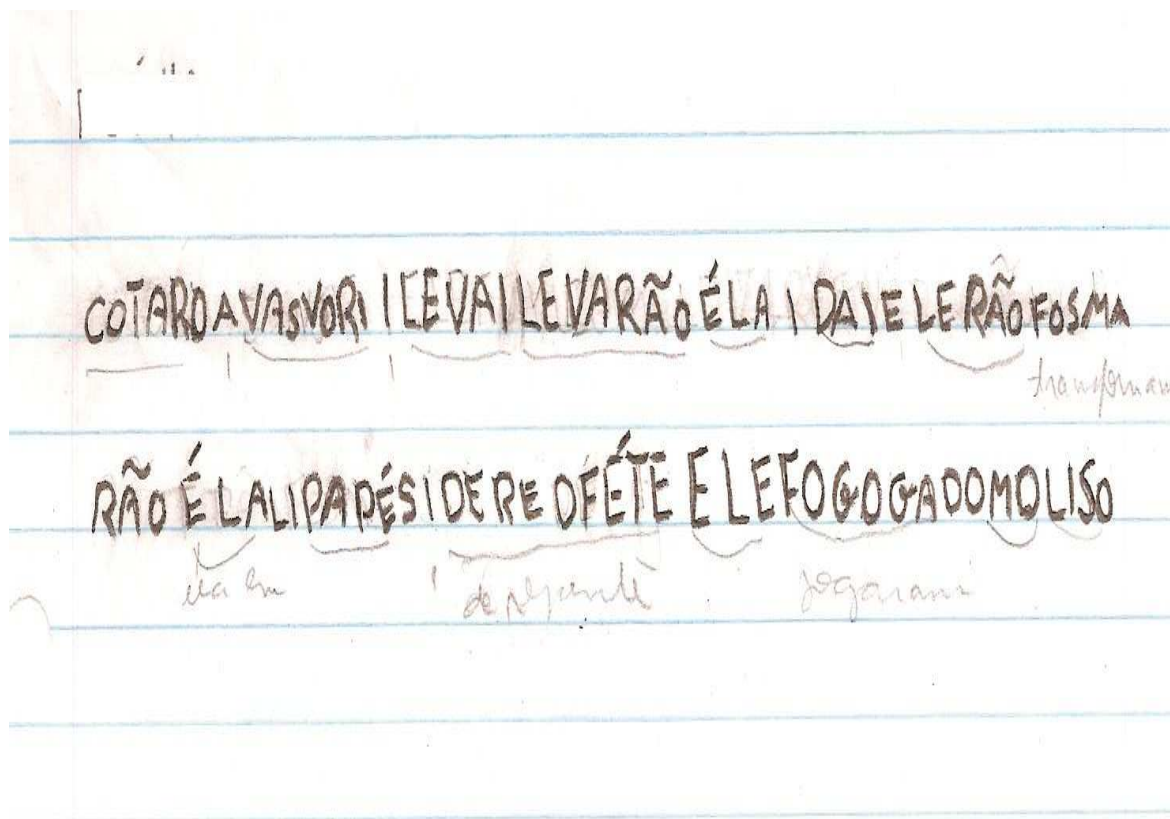 COTARO A VASVORI I LEVAI LEVARÃO ÉLA I DAI E LE RÃO FOSMA
transformam
RÃO É LALIPAPÉSIDERE DFÉTE E LEFOGOGADOMOLISO
ela em de repente jogaram